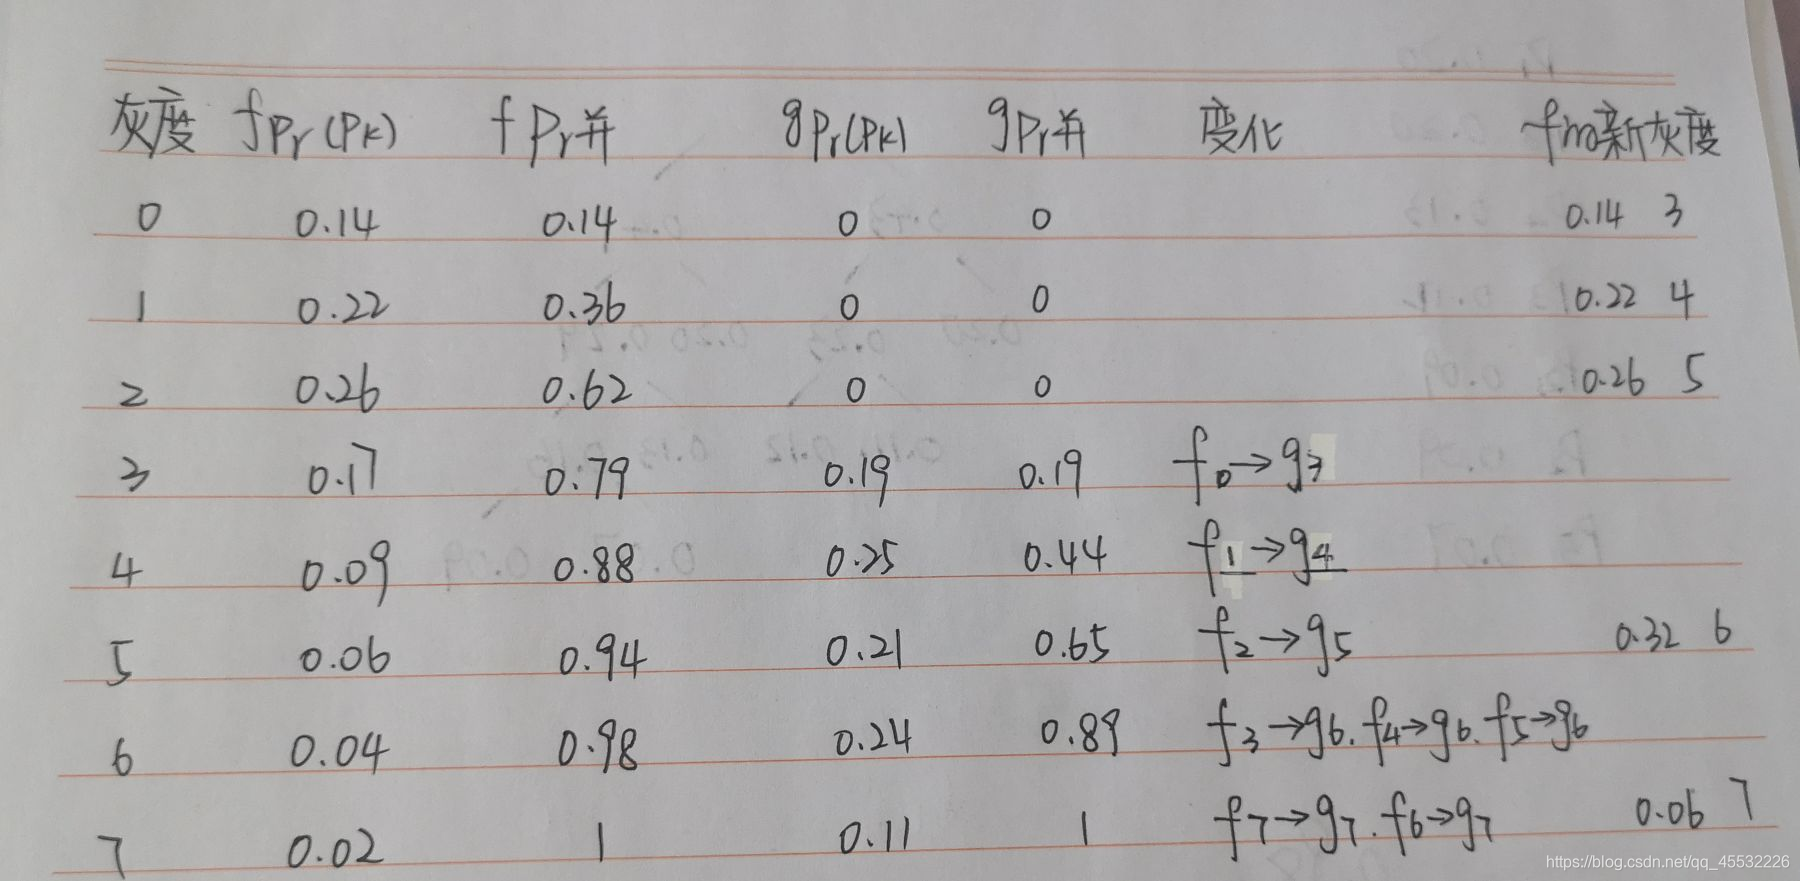 灰度 fPr(Pk) fPr并 gPr(Pk) gPr并 变化 fm新灰度
0 0.14 0.14 0 0 0.14 3
1 0.22 0.36 0 0 0.22 4
2 0.26 0.62 0 0 0.26 5
3 0.17 0.79 0.19 0.19 f0→g3
4 0.09 0.88 0.25 0.44 f1→g4
5 0.06 0.94 0.21 0.65 f2→g5 0.32 6
6 0.04 0.98 0.24 0.89 f3→g6. f4→g6. f5→g6
7 0.02 1 0.11 1 f7→g7. f6→g7 0.06 7
https://blog.csdn.net/qq_45532226